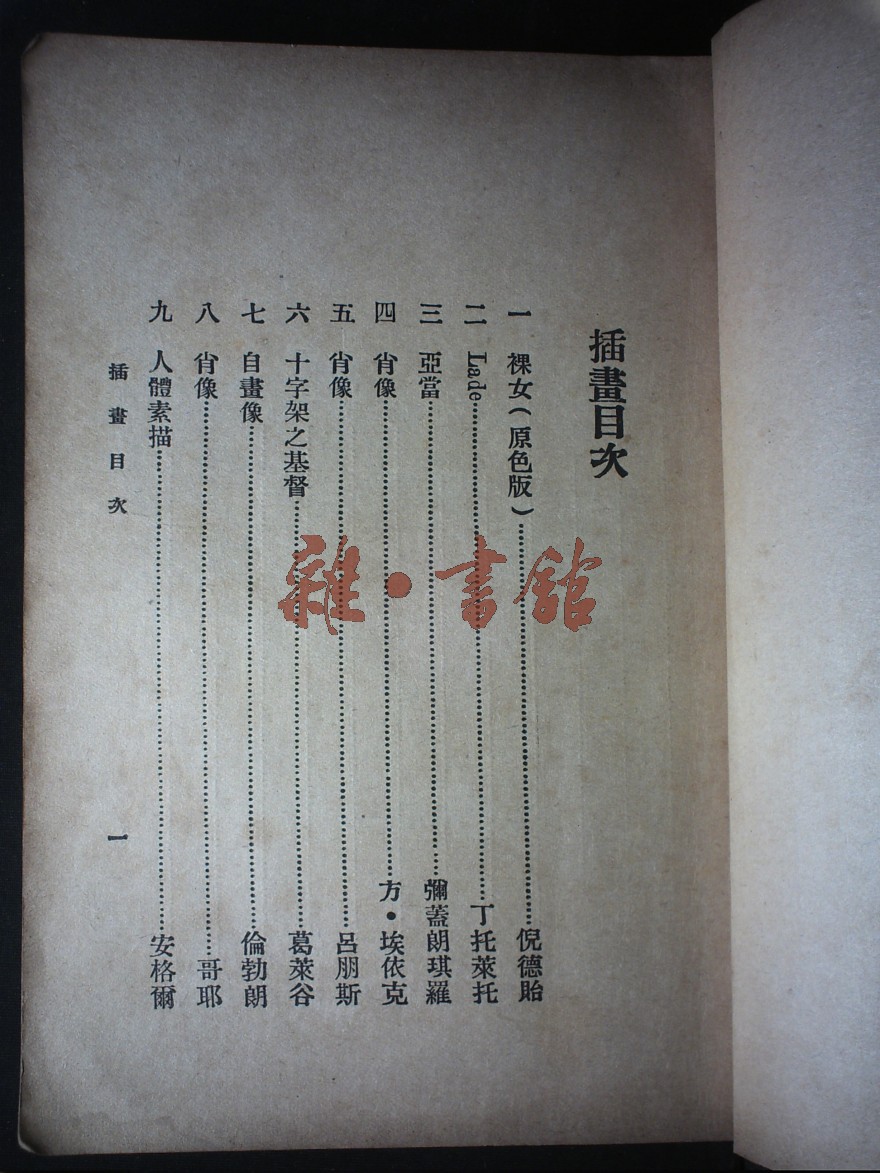 插畫目次
一 裸女(原色版)……倪德貽
二 Lade……丁托萊托
三 亞當……彌蓋朗琪羅
四 肖像……方・埃依克
五 肖像……呂朋斯
六 十字架之基督……葛萊谷
七 自畫像……倫勃朗
八 肖像……哥耶
九 人體素描……安格爾
插畫目次 一
雜・書館